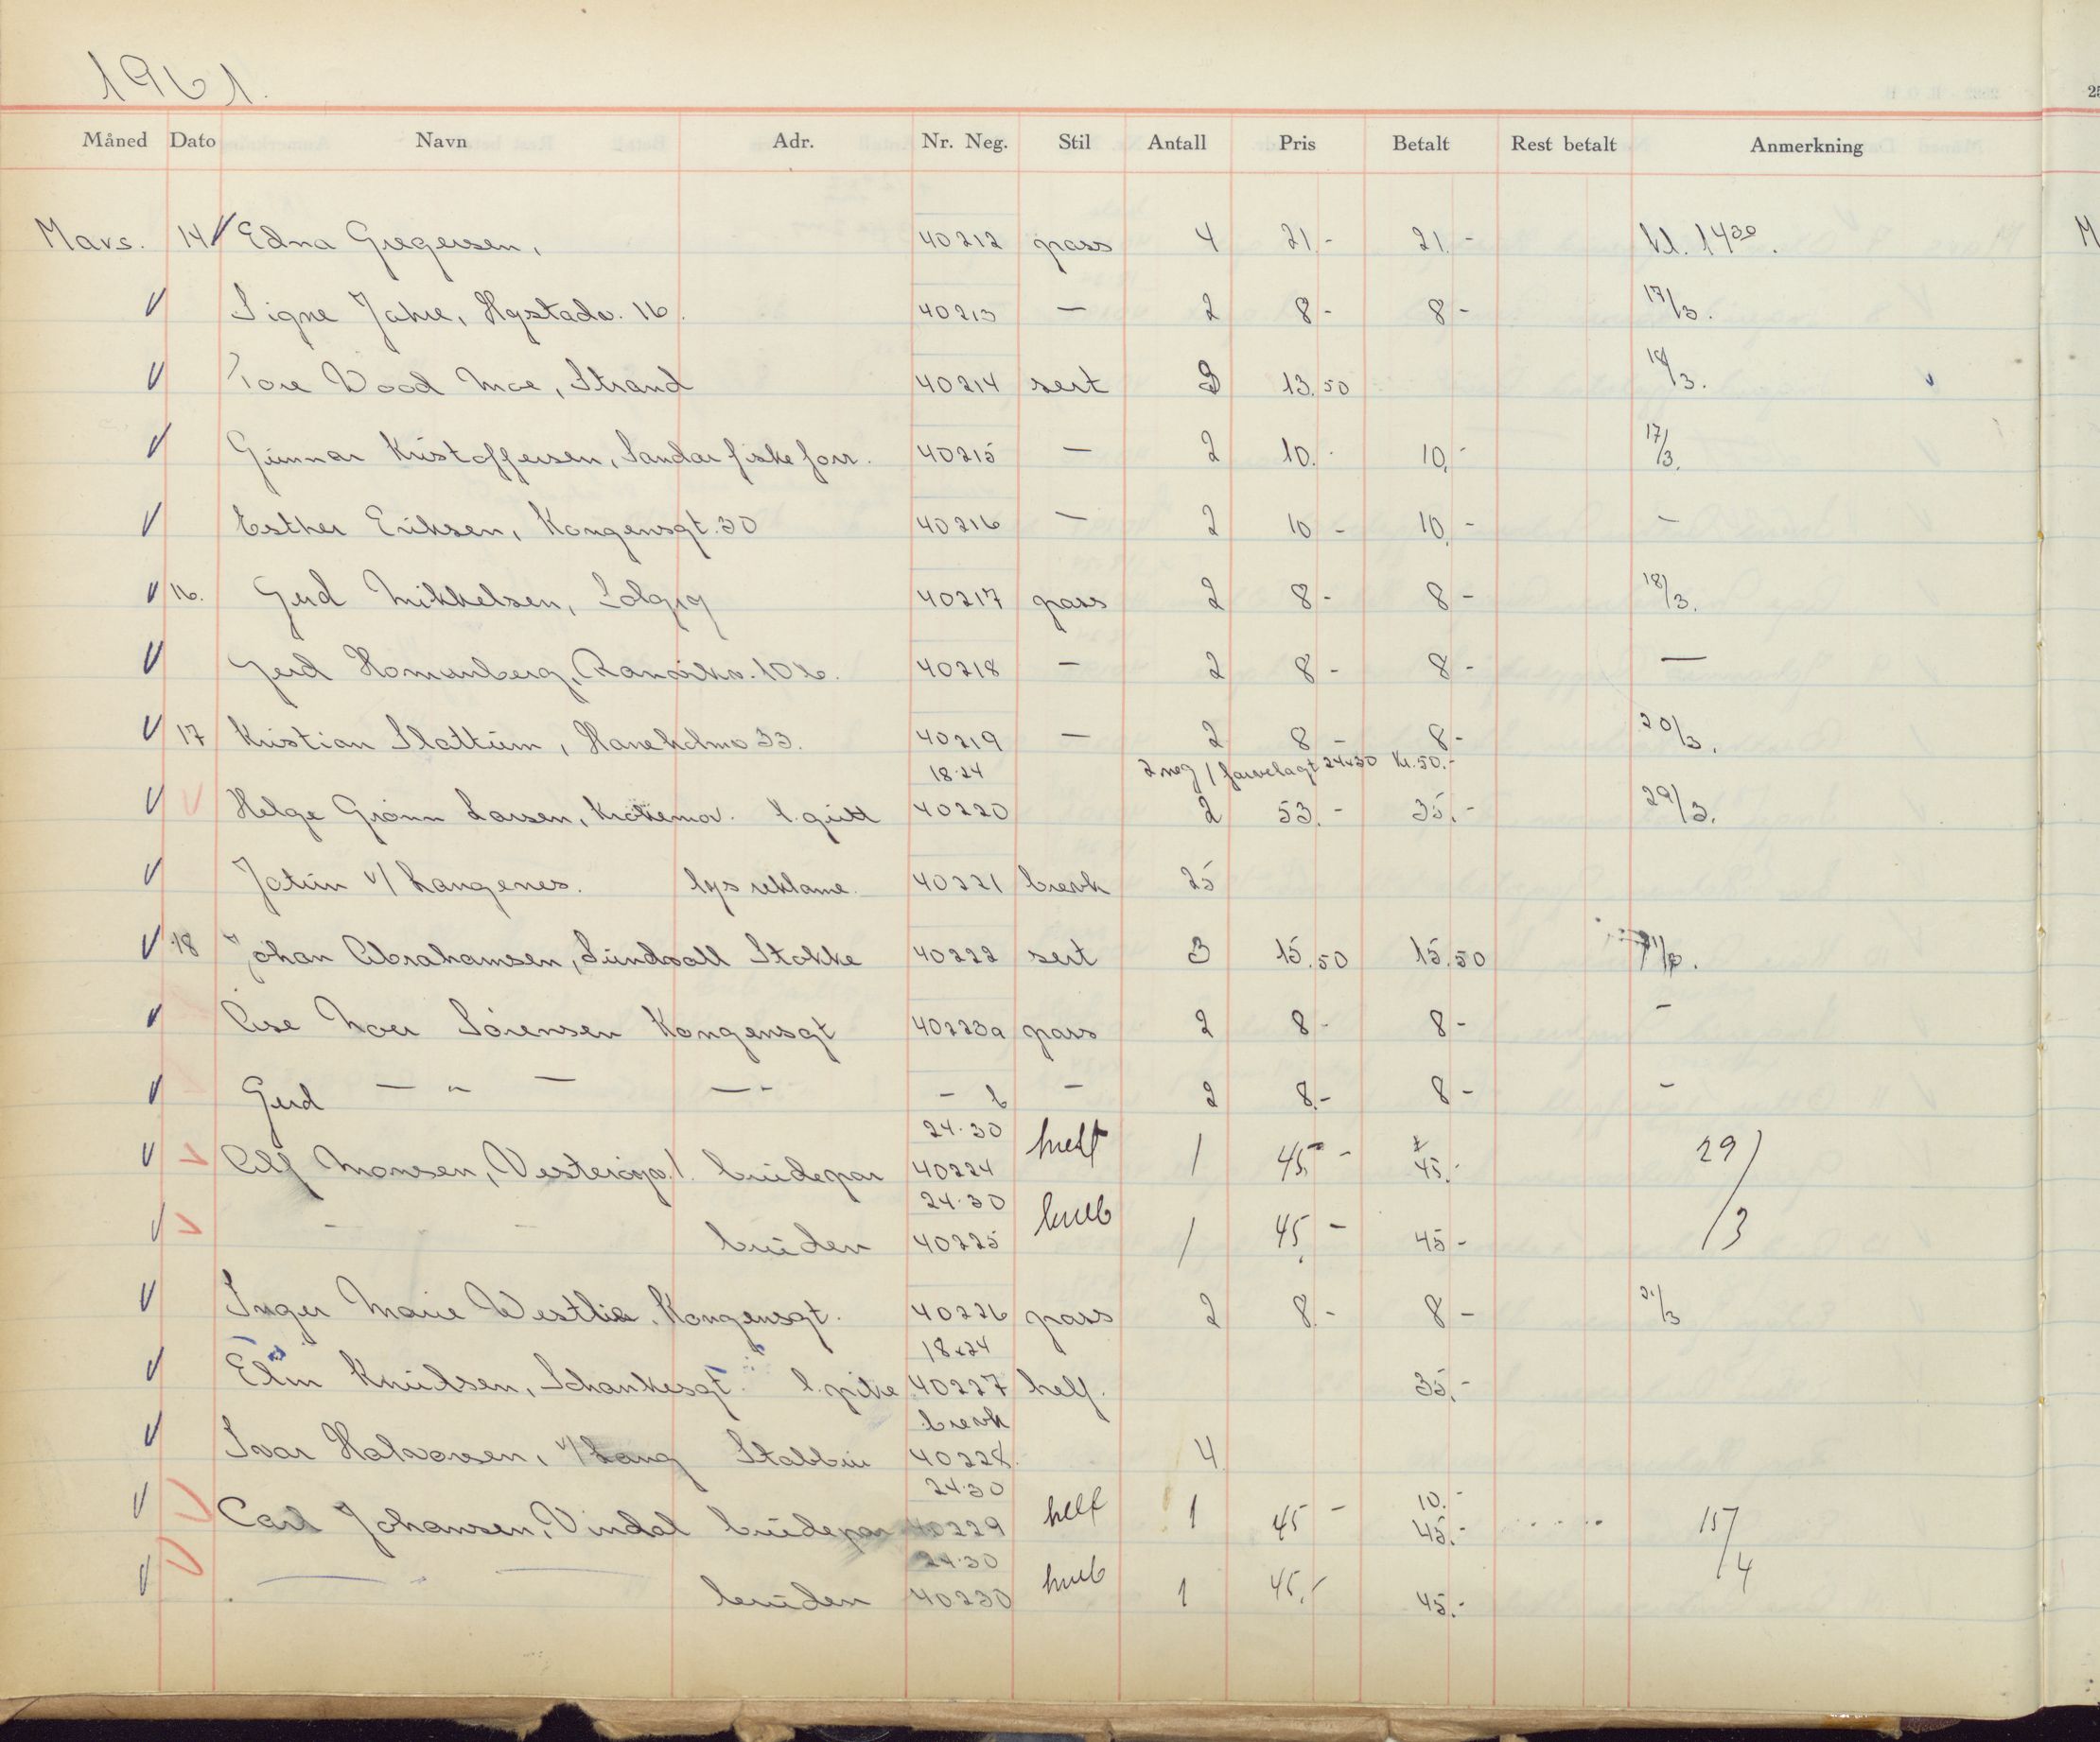 1961.
Måned Dato Navn Adr. Nr. Neg. Stil Antall Pris Betalt Rest betalt Anmerkning
Mars. 14 Edna Gregersen, 40212 pass 4 21.- 21.- kl. 14 30.
Signe Jahre, Hystadv. 16. 40213 — 2 8- 8- 17/3.
Tore Wood Moe, Strand 40214 sert 3 13.50 /3.
Gunnar Kristoffersen, Sandar fiske forr. 40215 — 2 10.- 10.- 17/3.
Esther Eriksen, Kongensgt. 30 40216 — 2 10 - 10.- –
16. Gerd Mikkelsen, 40217 pass 2 8- 8- 18/3.
Gerd Homanberg, 40218 — 2 8- 8- —
17 Kristian Slattum, Haneholmv 33. 40219 — 2 8 - 8- 20/3.
18·24 2 neg / farvelagt 24x30 Kr. 50.-
Helge Grønn Larsen, l. gutt 40220 2 53.- 35.- 29/3.
Jotun v/ Langenes. lys reklame. 40221 brevk 25
18 Johan Abrahamsen, Sundvall Stokke 40222 sert 3 15.50 15.50
Åse Moer Sørensen Kongensgt 40223a pass 2 8- 8- –
Gerd — " — — - – b – 2 8.- 8- –
24·30
Alf Monsen, Vesterøyv. 1. brudepar 40224 helf 1 45 - 45.- 29/3
24·30
– – bruden 40225 1 45.- 45-
Inger Marie Westlie, Kongensgt. 40226 pass 2 8.- 8- 21/3
18x24
Elin Knudsen, Schankesgt. l. pike 40227 helf. 35.-
brevk
Ivar Halvorsen, v/ Lang Stabbur 40228. 4
24·30 10.-
Carl Johansen, Vindal brudepar 40229 helf 1 45 - 45.- 15/4
24·30
bruden 40230 1 45.- 45.-